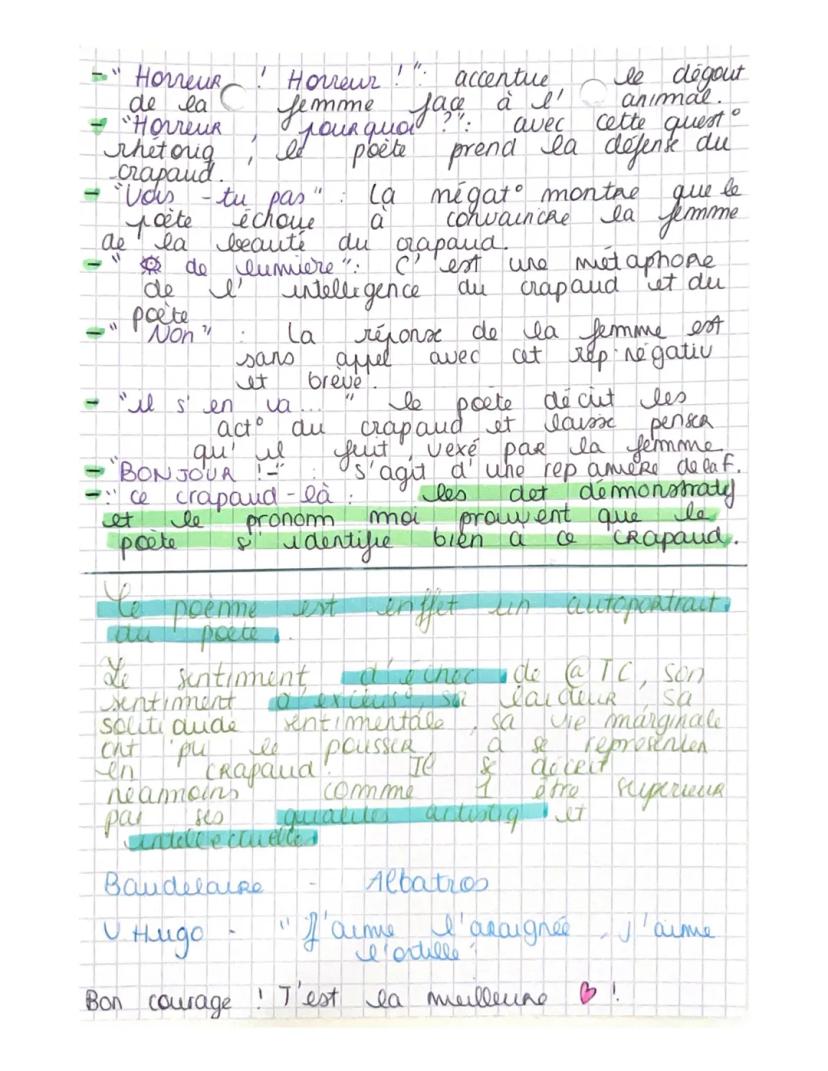 - " Horreur ! Horreur ! " : accentue le dégout
de la femme face à l' animal.
- "Horreur , pourquoi ?" : avec cette quest°
rhétoriq , le poète prend la défense du
crapaud.
- "Vois - tu pas" : la négat° montre que le
poète échoue à convaincre la femme
de la beauté du crapaud.
- " de lumière" : C' est une métaphore
de l' intelligence du crapaud et du
poète
- " Non " : La réponse de la femme est
sans appel avec cet rép négativ
et brève.
- "il s' en va ... " le poète décrit les
act° du crapaud et laisse penser
qu' il fuit , vexé par la femme
- "BONJOUR !-" : s'agit d'une rep amère de la f.
- :" ce crapaud-là : les det démonstratif
et le pronom moi prouvent que le
poète s' identifie bien a ce crapaud.
Le poènme est enffet un autoportrait
du poète .
Le sentiment d'échec de TC, son
sentiment d'exclus, sa laideur sa
solitiduade sentimentale , sa vie marginale
ont pu le pousser à se représenter
en crapaud. Il se décrit
néamoins comme 1 être supérieur
par ses qualités artistiq et
intellectuelles
Baudelaire - Albatros
V Hugo - " J'aime l'araignée , j'aime
l'ortille "
Bon courage ! T'est la meilleure !